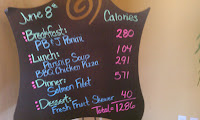 June 8th Calories
Breakfast: 280
PB+J Panini
Lunch: 104
Parsnip Soup 291
BBQ Chicken Pizza
Dinner: 571
Salmon Filet
Dessert: 40
Fresh Fruit Skewer
Total=1286